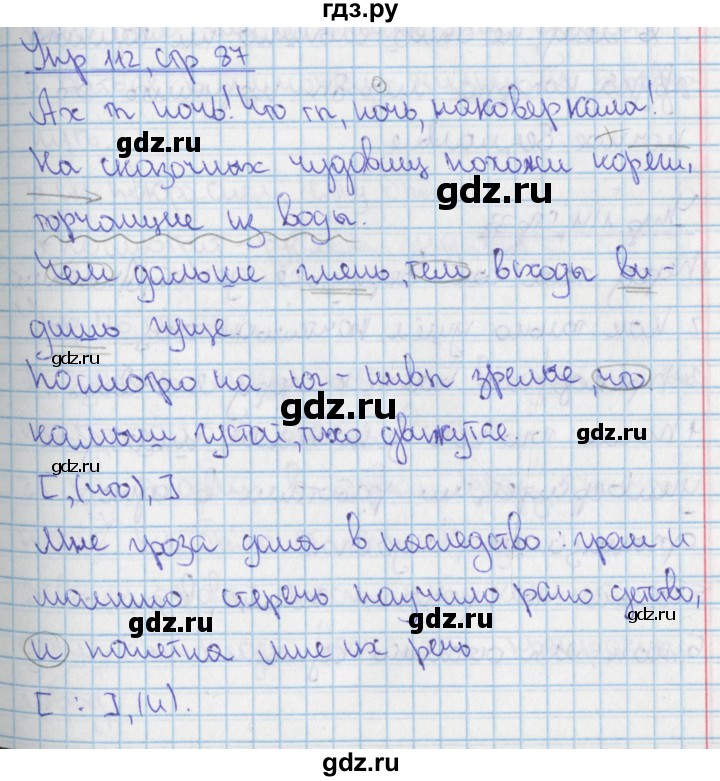 гдз.ру
Упр 112, стр 87
Ах ты ночь! Что ты, ночь, наковеркала!
gdz.ru
На сказочных чудовищ похожи корени,
gdz.ru
торчащие из воды.
gdz.ru
Чем дальше глянь, тем всходы ви-
дишь гуще
gdz.ru
Посмотрю на юг - нивы зрелые, что
gdz.ru
камыш густой, тихо движутся.
gdz.ru
gdz.ru
[ , (что), ]
Мне гроза дана в наследство: гром и
молнию стеречь научило рано детство,
gdz.ru
gdz.ru
и понятна мне их речь
[ : ], (и).
gdz.ru
gdz.ru